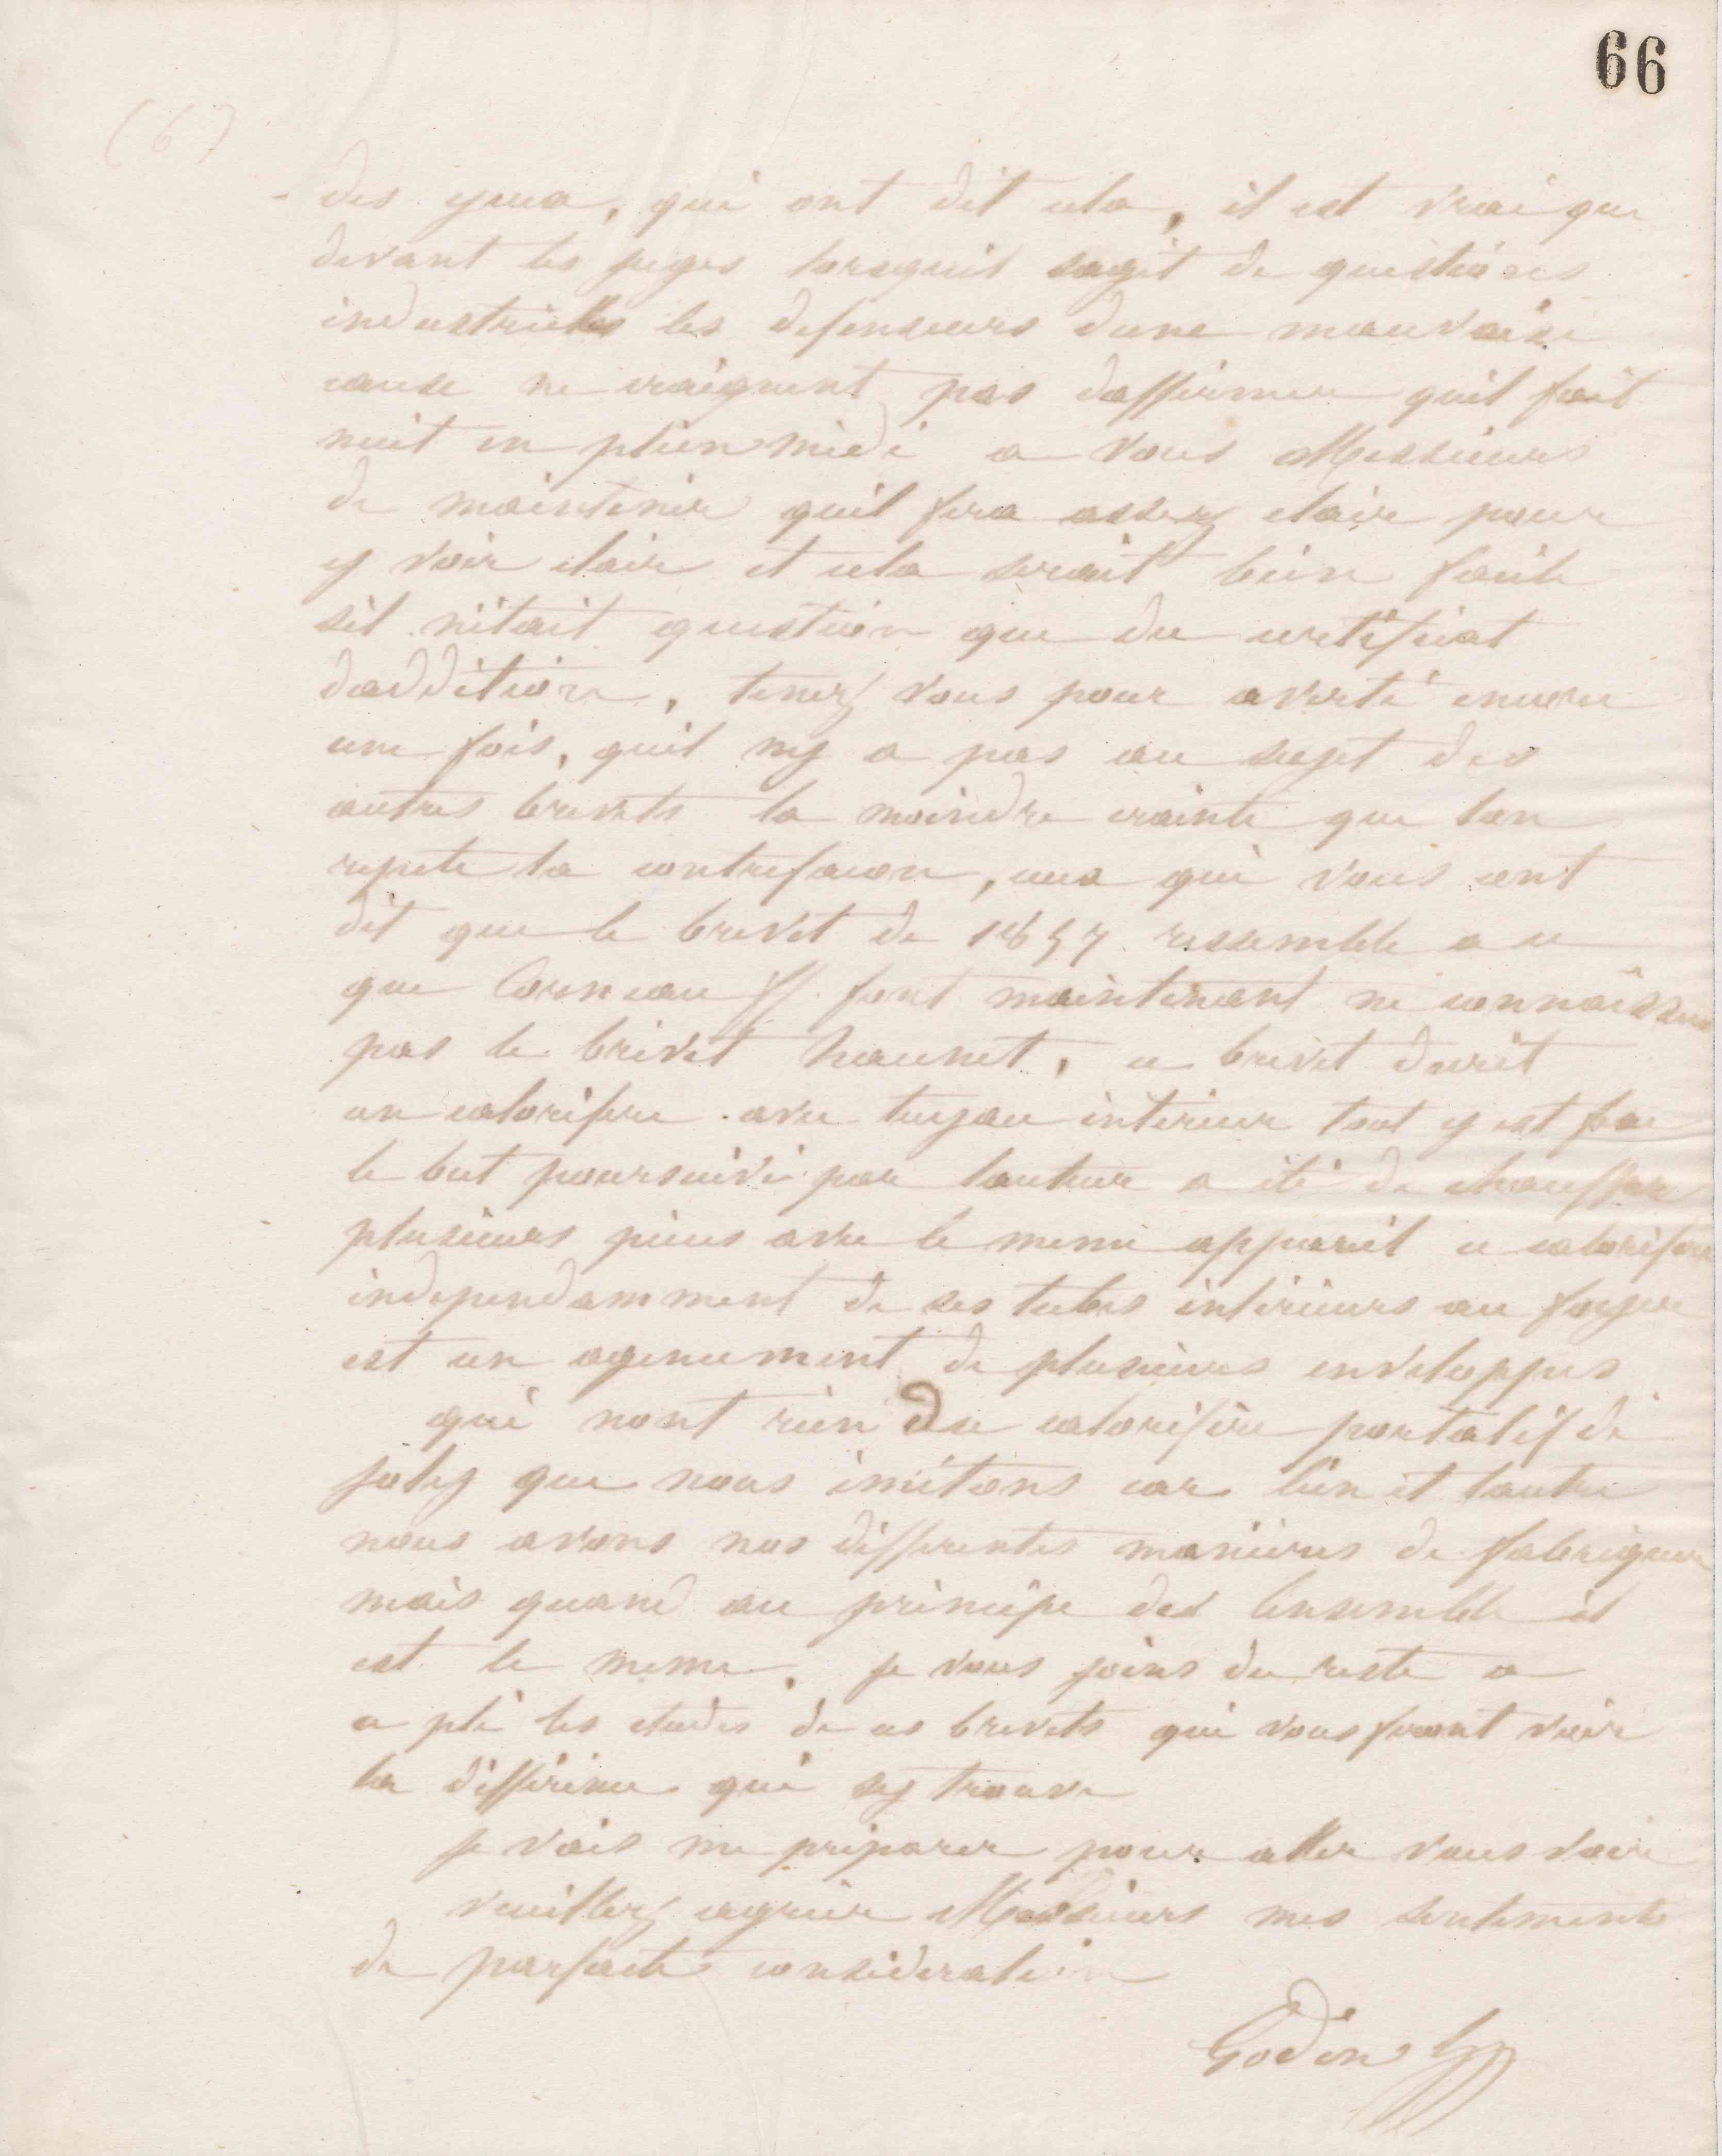 66
(6)
des yeux, qui ont dit cela, il est vrai que
devant les juges lorsquil sagit de questions
industrielles les defenseurs dune mauvaise
cause ne craignent pas daffirmer quil fait
nuit en plein midi a vous Messieurs
de maintenir quil fera assez clair pour
y voir clair et cela serait bien facile
sil nétait question que du certificat
daddition, tenez vous pour averti encore
une fois, quil ny a pas au sujet des
autres brevets la moindre crainte que lon
repete la contrefacon, ceux qui vous ont
dit que le brevet de 1857 ressemble a ce
que Corneau ff. font maintenant ne connaissent
pas le brevet haunet, ce brevet decrit
un calorifere avec tuyau interieur tout y est
le but poursuivi par lauteur a été de chauffer
plusieurs pieces avec le meme appareil ce calorifere
independamment de ses tubes intérieurs au foyer
est un agencement de plusieurs enveloppes
qui nont rien du calorifère portatif de
joly que nous imitons car lun et lautre
nous avons nos differentes manieres de fabriquer
mais quand au principe des lensemble il
est le meme. je vous joins du reste a
ce pli les etudes de ces brevets qui vous feront voir
la différence qui sy trouve
je vais me préparer pour aller vous voir
veuillez agréer Messieurs mes sentiments
de parfaite consideration
Godin